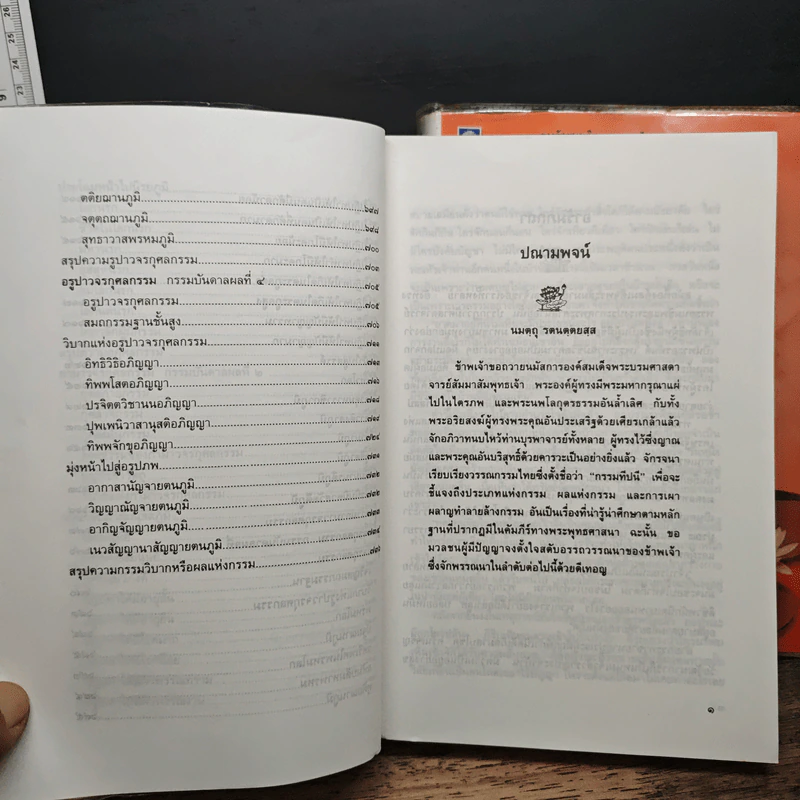 ตติยฌานภูมิ ๖๙๗
จตุตถฌานภูมิ ๖๙๘
สุทธาวาสพรหมภูมิ ๗๐๐
สรุปความรูปาวจรกุศลกรรม ๗๐๓
อรูปาวจรกุศลกรรม กรรมบันดาลผลที่ ๔ ๗๐๕
อรูปาวจรกุศลกรรม ๗๐๕
สมถกรรมฐานชั้นสูง ๗๐๖
วิบากแห่งอรูปาวจรกุศลกรรม ๗๑๑
อิทธิวิธิอภิญญา
ทิพพโสตอภิญญา
ปรจิตตวิชานนอภิญญา
ปุพเพนิวาสานุสติอภิญญา
ทิพพจักขุอภิญญา
มุ่งหน้าไปสู่อรูปภพ
อากาสานัญจายตนภูมิ
วิญญาณัญจายตนภูมิ
อากิญจัญญายตนภูมิ
เนวสัญญานาสัญญายตนภูมิ
สรุปความกรรมวิบากหรือผลแห่งกรรม
ปณามพจน์
นมตฺถุ รตนตฺตยสฺส
ข้าพเจ้าขอถวายนมัสการองค์สมเด็จพระบรมศาสดา
จารย์สัมมาสัมพุทธเจ้า พระองค์ผู้ทรงมีพระมหากรุณาแผ่
ไปในไตรภพ และพระนพโลกุตรธรรมอันล้ำเลิศ กับทั้ง
พระอริยสงฆ์ผู้ทรงพระคุณอันประเสริฐด้วยเศียรเกล้าแล้ว
จักอภิวาทนบไหว้ท่านบุรพาจารย์ทั้งหลาย ผู้ทรงไว้ซึ่งญาณ
และพระคุณอันบริสุทธิ์ด้วยคารวะเป็นอย่างยิ่งแล้ว จักรจนา
เรียบเรียงวรรณกรรมไทยซึ่งตั้งชื่อว่า “กรรมทีปนี” เพื่อจะ
ชี้แจงถึงประเภทแห่งกรรม ผลแห่งกรรม และการเผา
ผลาญทำลายล้างกรรม อันเป็นเรื่องที่น่ารู้น่าศึกษาตามหลัก
ฐานที่ปรากฏมีในคัมภีร์ทางพระพุทธศาสนา ฉะนั้น ขอ
มวลชนผู้มีปัญญาจงตั้งใจสดับอรรถวรรณนาของข้าพเจ้า
ซึ่งจักพรรณนาในลำดับต่อไปนี้ด้วยดีเทอญ
๑